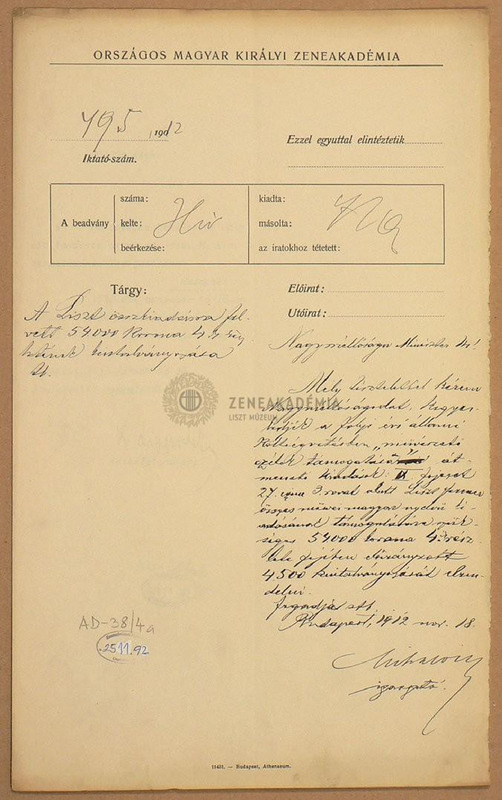 ORSZÁGOS MAGYAR KIRÁLYI ZENEAKADÉMIA
795, 1912
Iktató-szám.
Ezzel egyuttal elintéztetik
A beadvány
száma:
kelte:
beérkezése:
Hiv
kiadta:
másolta:
az iratokhoz tétetett:
Tárgy:
Előirat:
Utóirat:
A Liszt összkiadásra fel-
vett 54000 Korona 4.
kiutalványozása
Nagyméltóságu Miniszter úr!
Mély tisztelettel kérem
Nagyméltóságodat, kegyes-
kedjék a folyó évi állami
költségvetésben "művészeti
czélok támogatására" át-
meneti kiadások IX fejezet
27 czim 3. rovat alatt Liszt Ferencz
összes művei magyar nyelvű ki-
adásának támogatására szük-
séges 54000 korona 4. rész-
lete fejében előirányzott
4500 kiutalványozását elren-
delni.
Fogadja stb.
Budapest, 1912 nov. 18.
Mihalovich
igazgató.
ZENEAKADÉMIA
LISZT MÚZEUM
AD-38/4a
2511.92
Budapest, Athenaeum.